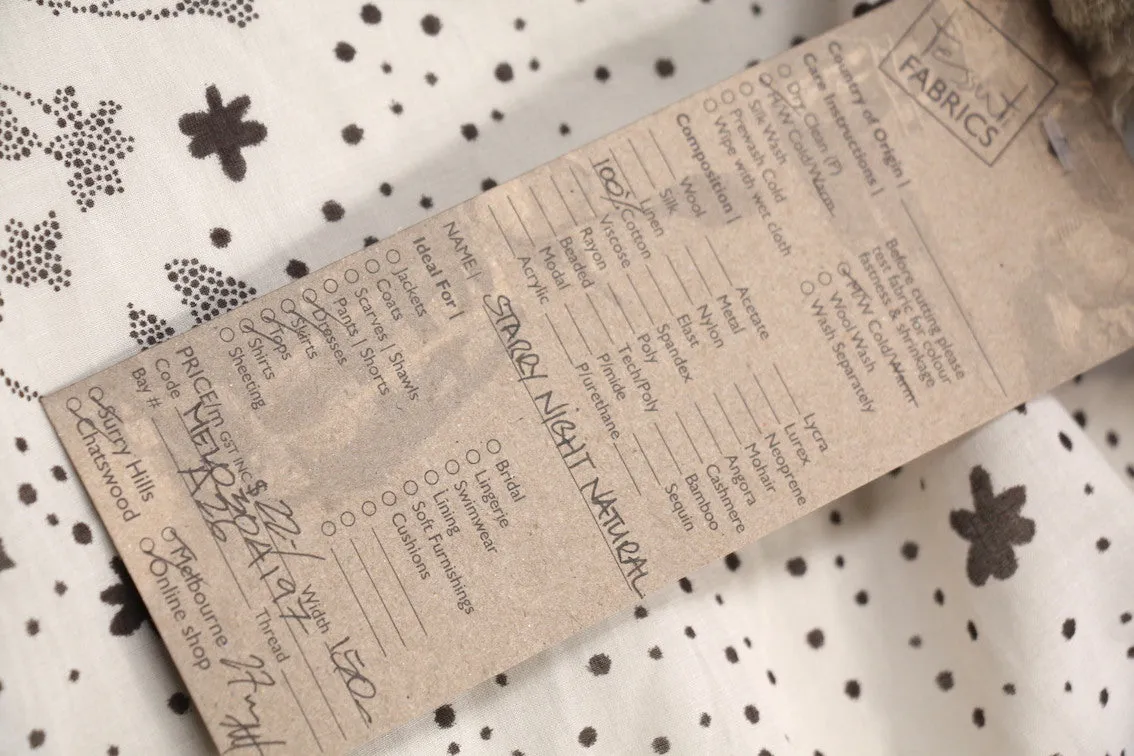 Tessuti
FABRICS
Country of Origin |
Care Instructions |
Dry Clean (P)
MW Cold/Warm
Silk Wash
Prewash Cold
Wipe with wet cloth
Before cutting please
test fabric for colour
fastness & shrinkage
HW Cold/Warm
Wool Wash
Wash Separately
Composition |
Wool
Silk
Linen
100% Cotton
Viscose
Rayon
Beaded
Modal
Acrylic
Acetate
Metal
Nylon
Elast
Spandex
Poly
Tech/Poly
P/mide
P/urethane
Lycra
Lurex
Neoprene
Mohair
Angora
Cashmere
Bamboo
Sequin
NAME | STARRY NIGHT NATURAL
Ideal For |
Jackets
Coats
Scarves | Shawls
Pants | Shorts
Dresses
Skirts
Tops
Shirts
Sheeting
Bridal
Lingerie
Swimwear
Lining
Soft Furnishings
Cushions
PRICE/m GST INC $ 22-/ Width 150
Code
Bay # A26 Thread
Surry Hills
Chatswood
Melbourne
Online shop